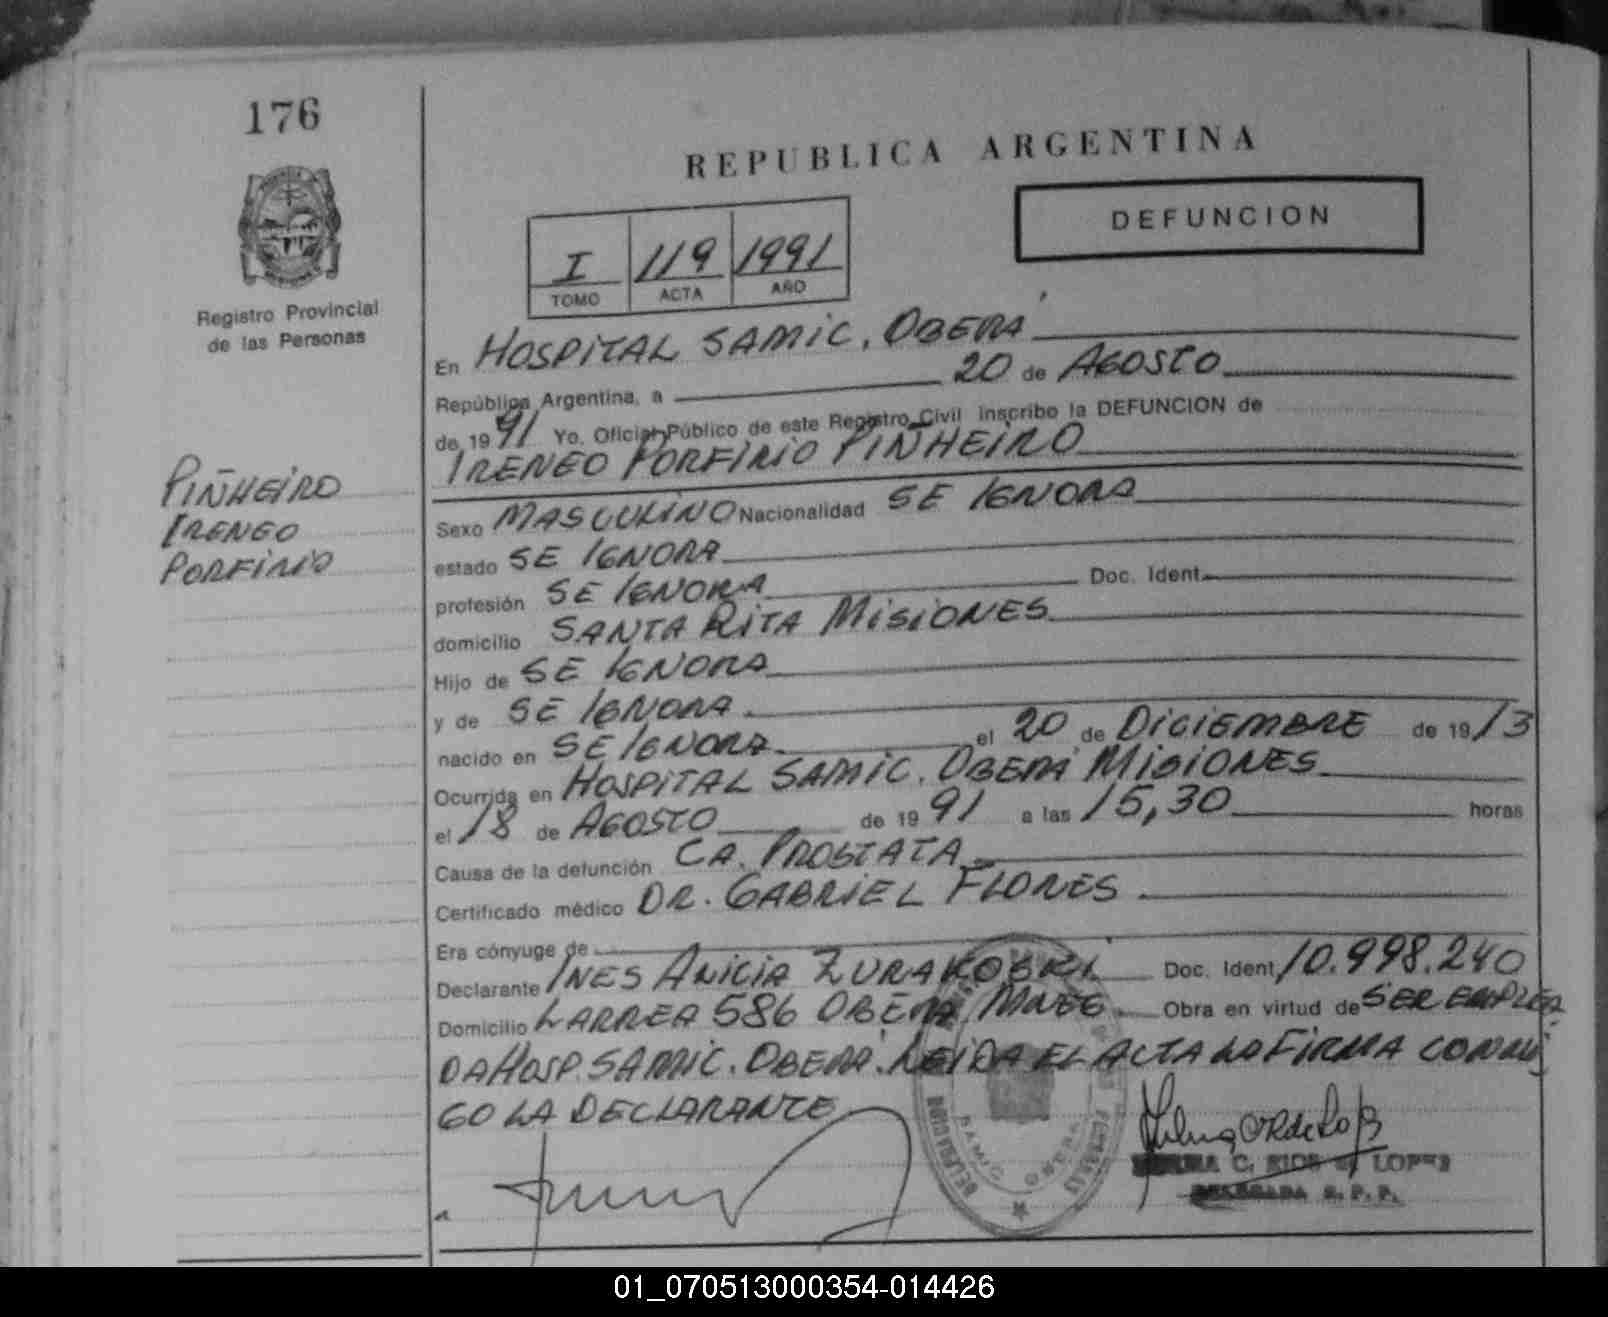 176
REPUBLICA ARGENTINA
DEFUNCION
I 119 1991
TOMO ACTA AÑO
Registro Provincial
de las Personas
En HOSPITAL SAMIC. OBERA
República Argentina, a 20 de AGOSTO
de 1991 Yo, Oficial Público de este Registro Civil inscribo la DEFUNCION de
IRENEO PORFIRIO PIÑHEIRO
PIÑHEIRO
IRENEO
PORFIRIO
Sexo MASCULINO Nacionalidad SE IGNORA
estado SE IGNORA
profesión SE IGNORA Doc. Ident.
domicilio SANTA RITA MISIONES
Hijo de SE IGNORA
y de SE IGNORA
nacido en SE IGNORA el 20 de DICIEMBRE de 1913
Ocurrida en HOSPITAL SAMIC. OBERA MISIONES
el 18 de AGOSTO de 1991 a las 15,30 horas
Causa de la defunción CA. PROSTATA
Certificado médico DR. GABRIEL FLORES
Era cónyuge de
Declarante INES ALICIA ZURAKOSKI Doc. Ident 10.998.240
Domicilio LARREA 586 OBERA MNES Obra en virtud de SER EMPLEA
DA HOSP. SAMIC. OBERA. LEIDA EL ACTA LA FIRMA CONMI
GO LA DECLARANTE
DELEGACION
SAMIC OBERA
C. RIOS LOPEZ
DELEGADA R. P. P.
01_070513000354-014426